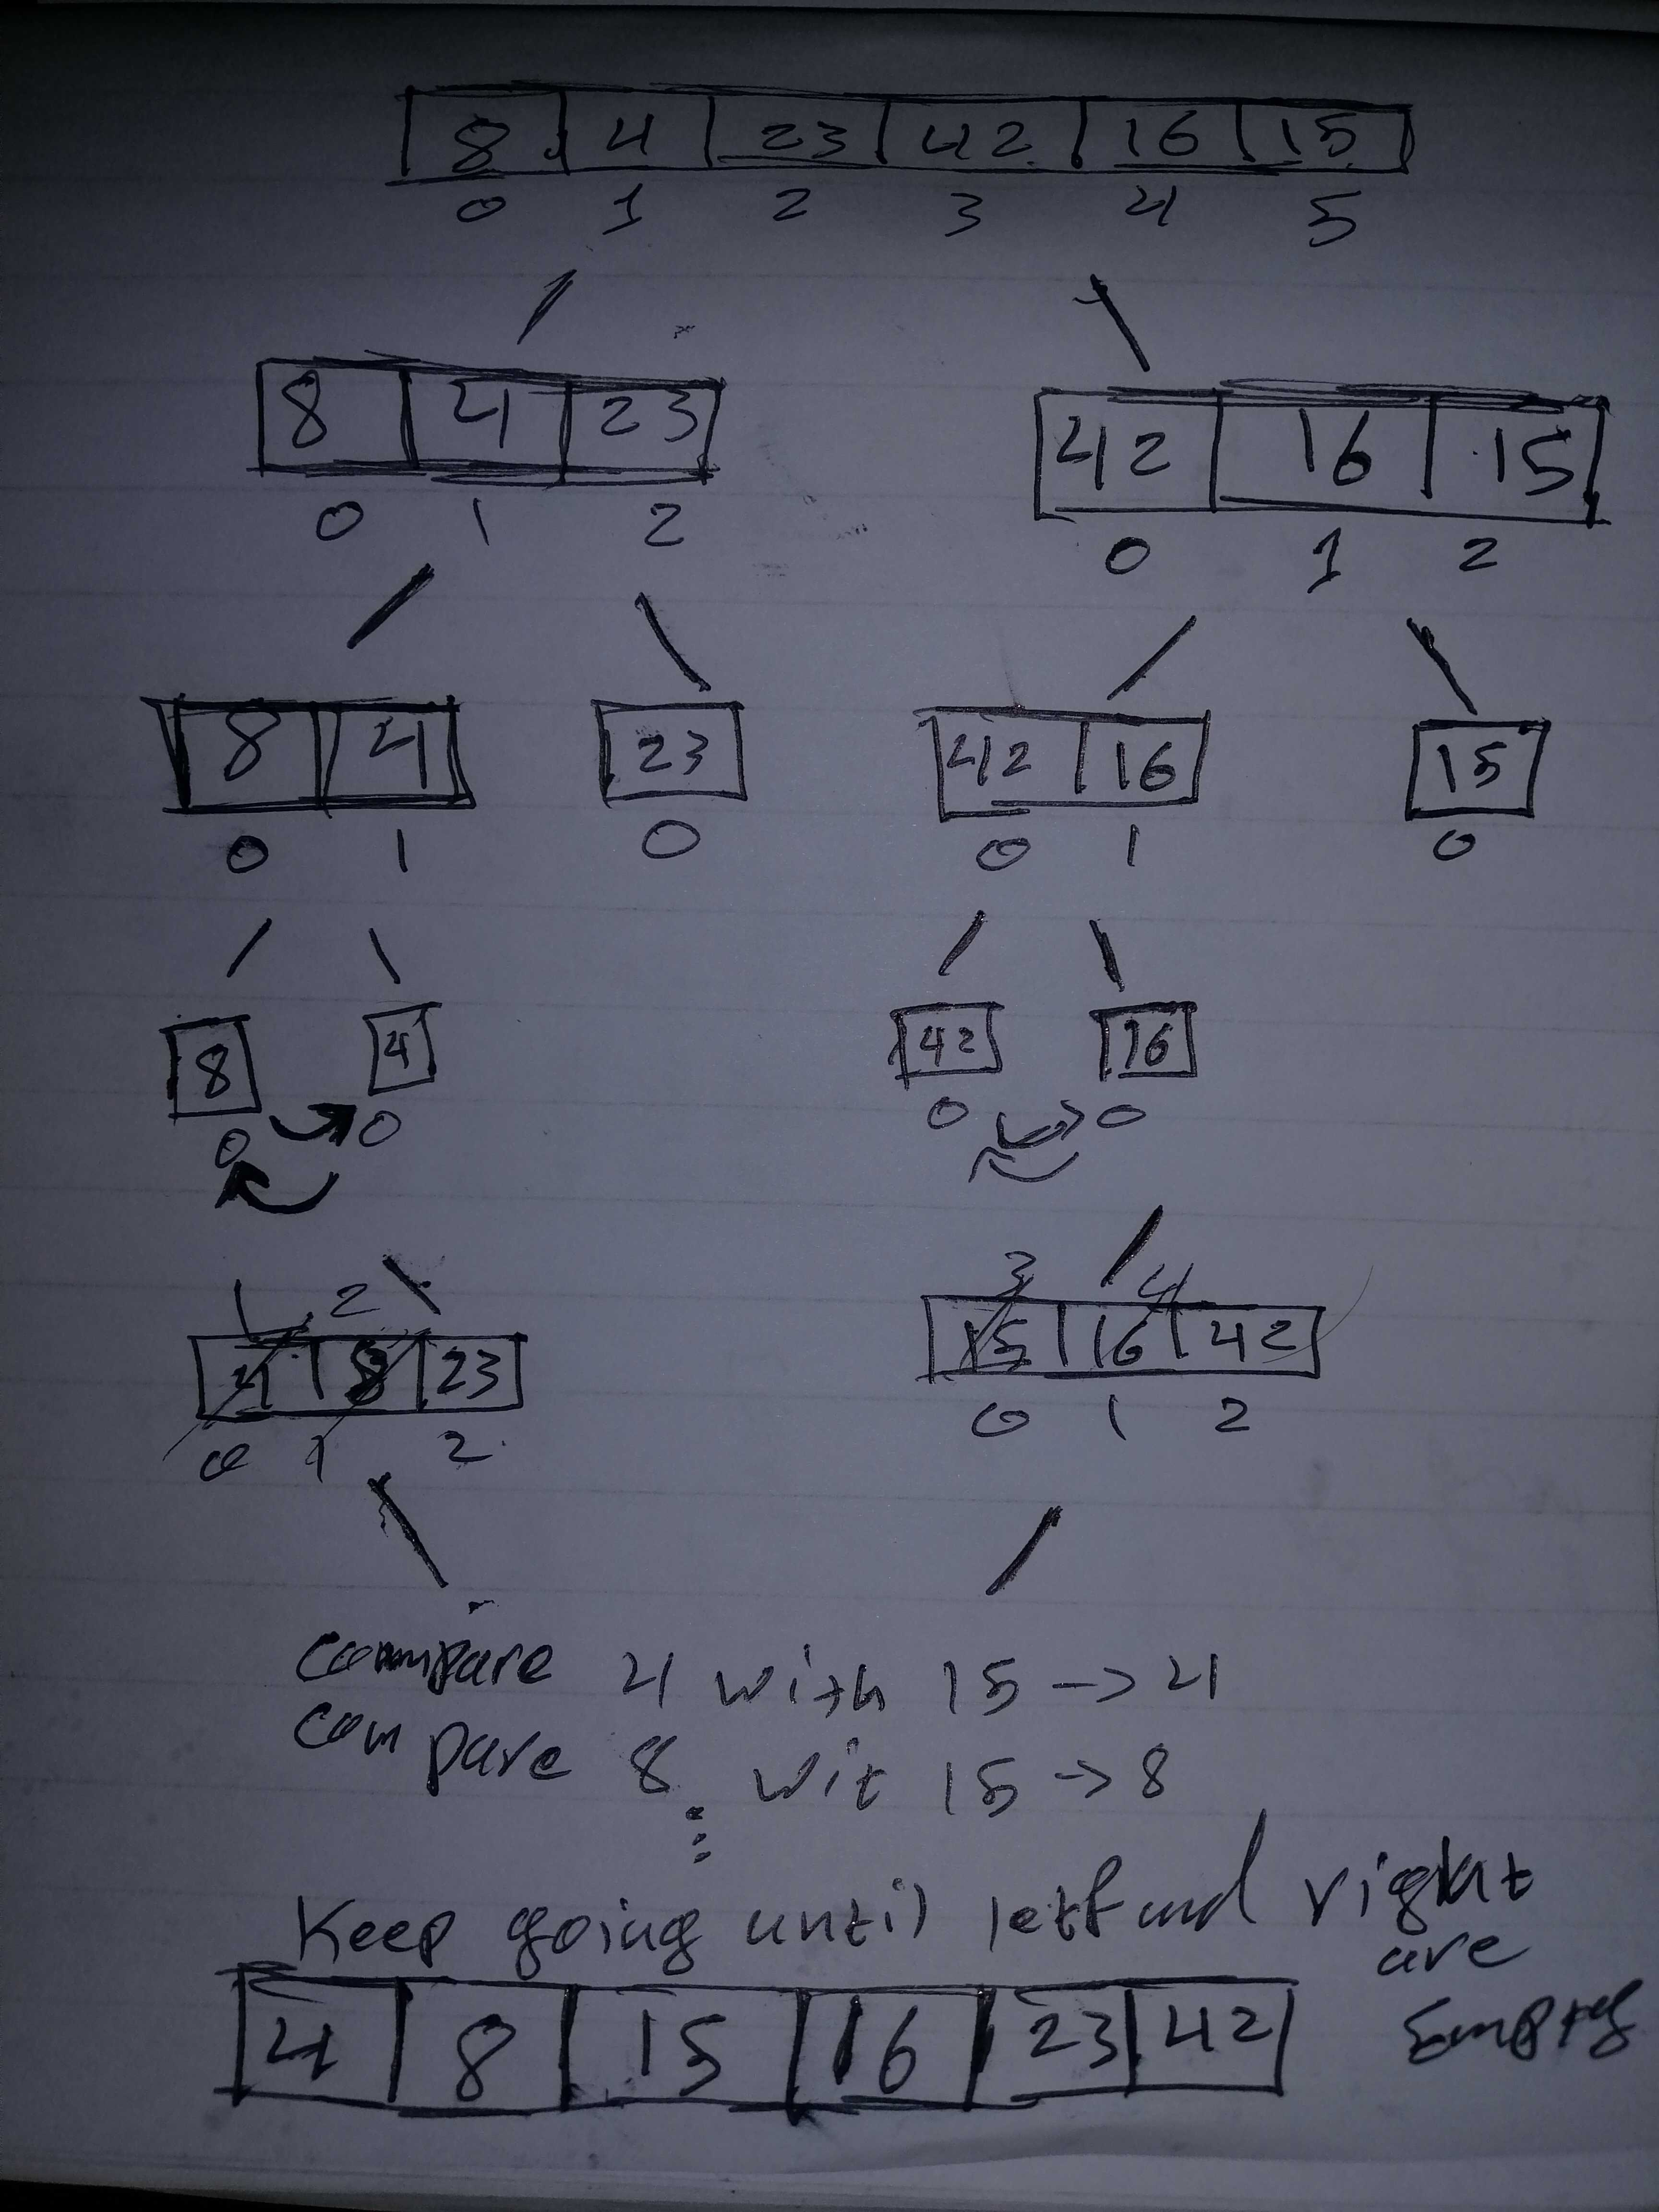 8 4 23 42 16 15
0 1 2 3 4 5
8 4 23 42 16 15
0 1 2 0 1 2
8 4 23 42 16 15
0 1 0 0 1 0
8 4 42 16
0 0 0 0
1 2 3 4
4 8 23 15 16 42
0 1 2 0 1 2
compare 4 with 15 -> 4
compare 8 wit 15 -> 8
Keep going until left and right
are
Empty
4 8 15 16 23 42